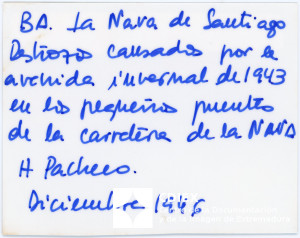 BA. La Nava de Santiago
Destrozos causados por la
avenida invernal de 1943
en los pequeños puentes
de la carretera de la NAVA
H Pacheco.
Diciembre 1946